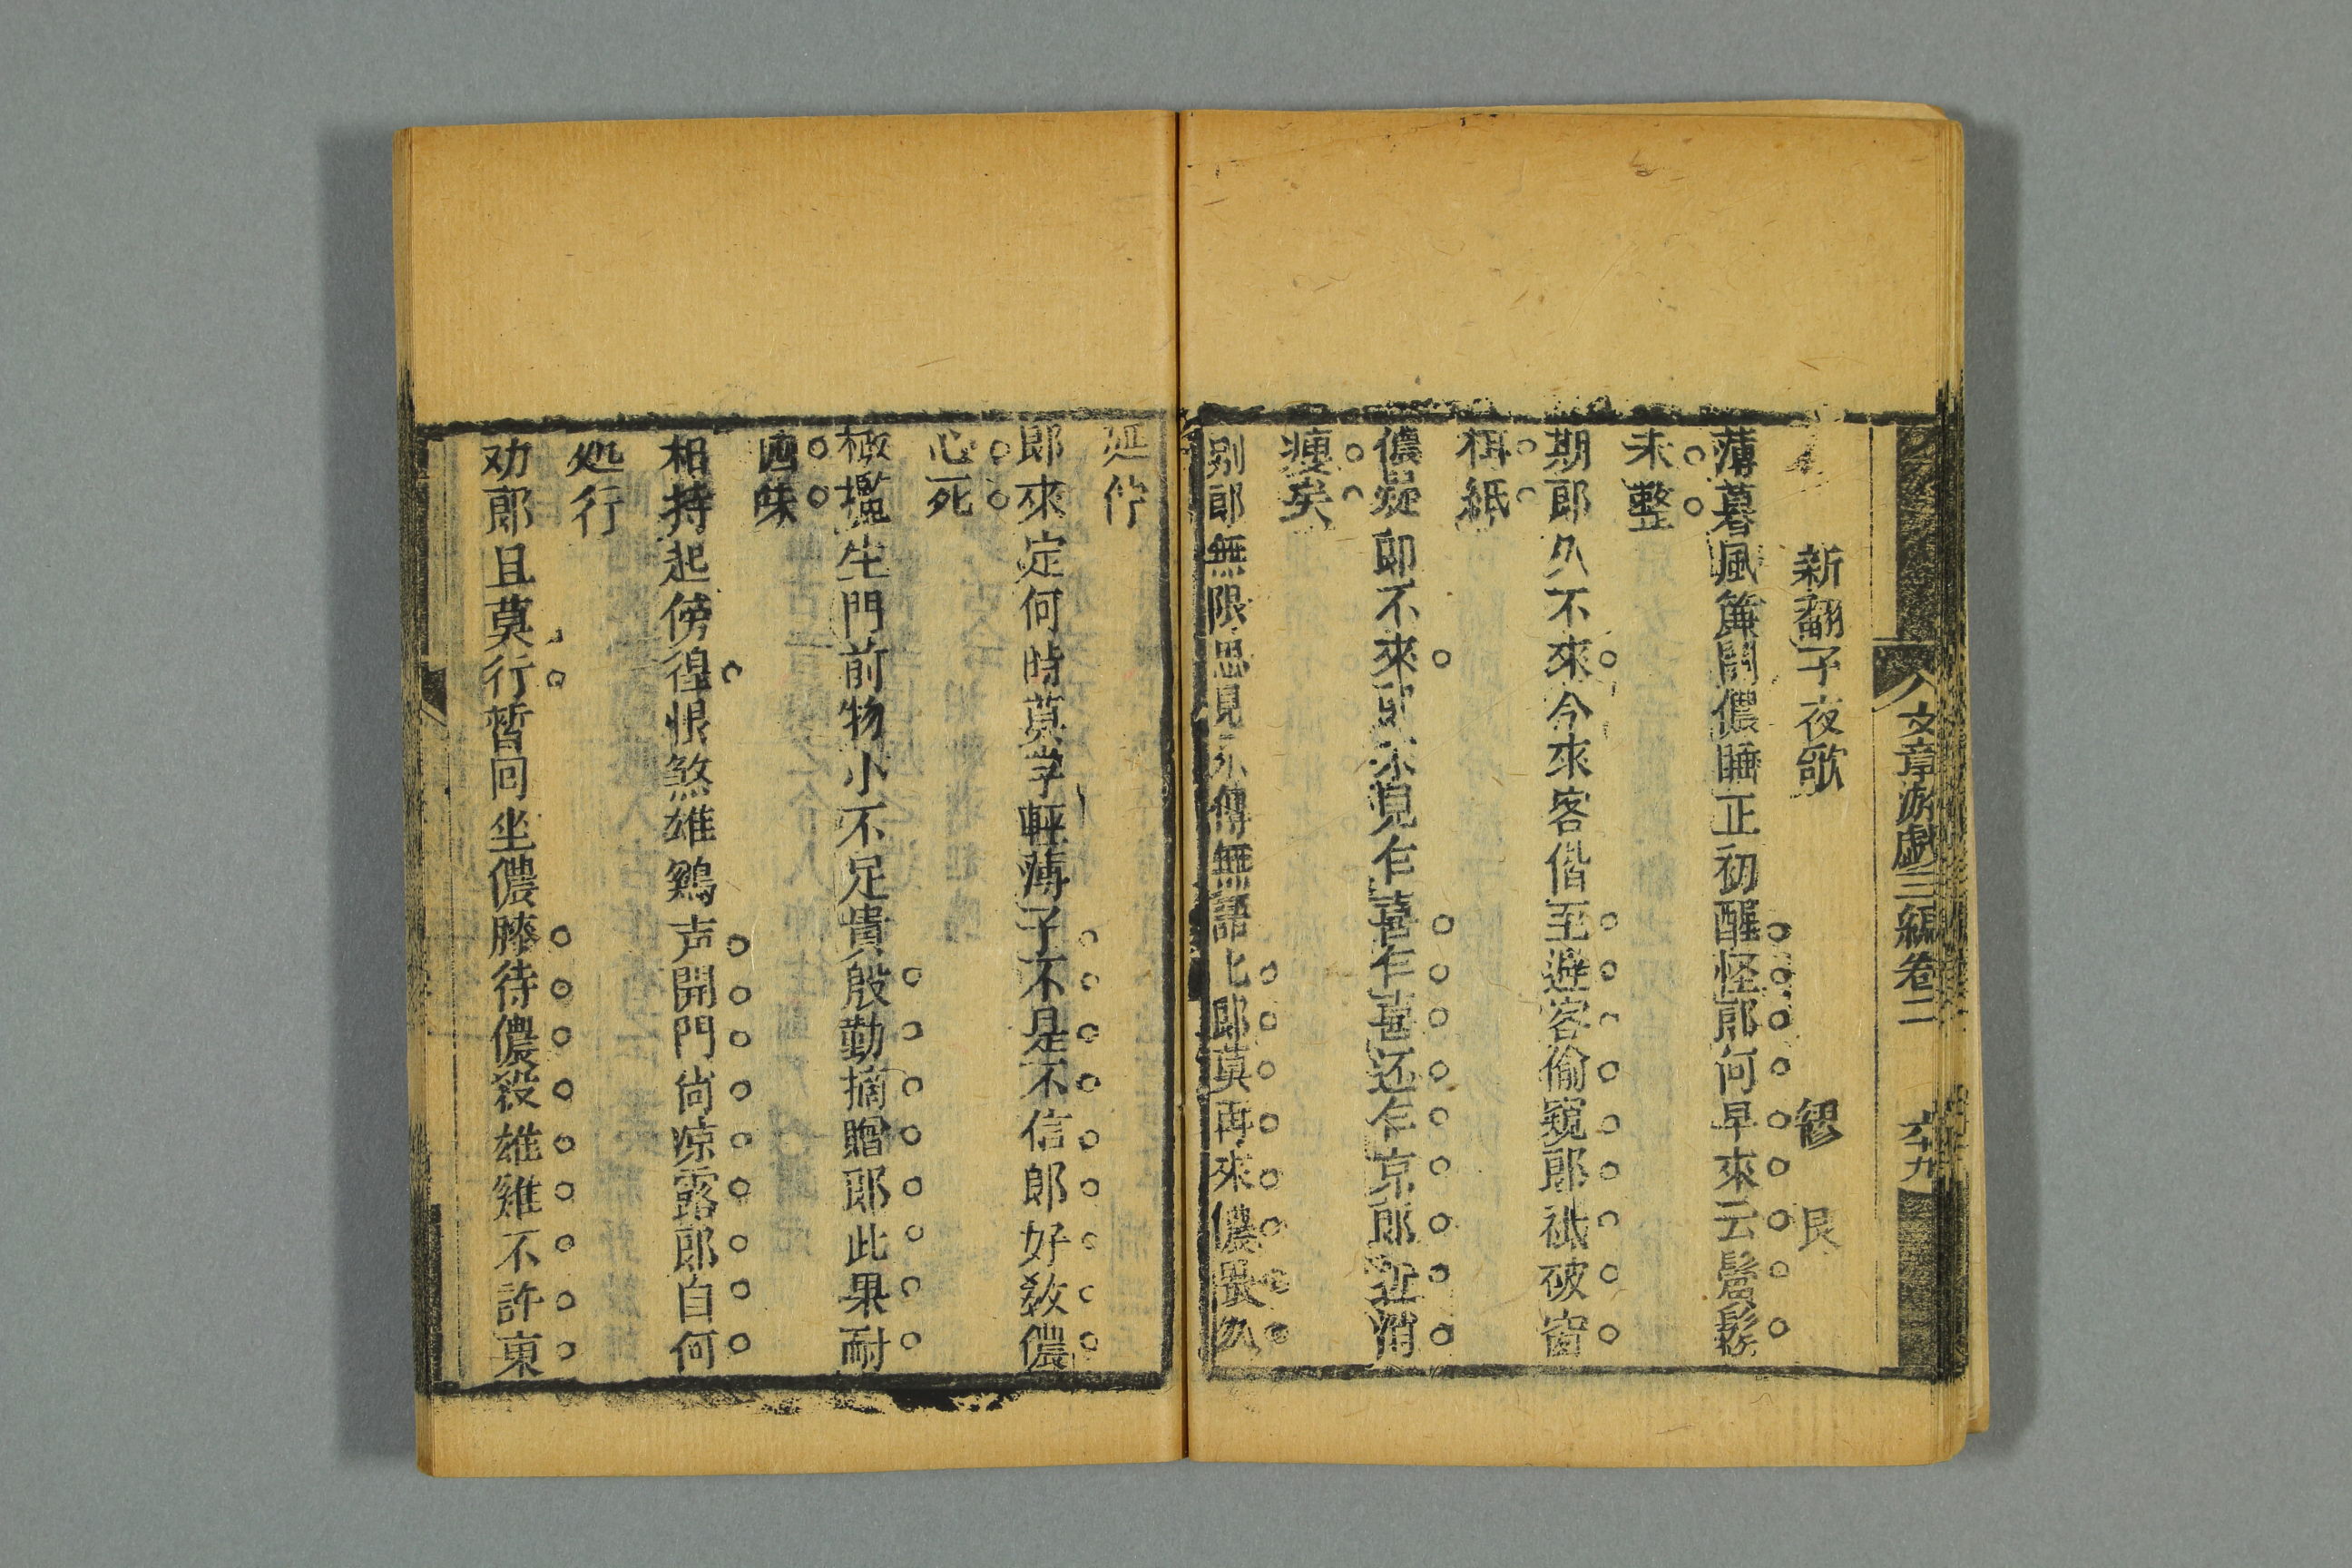 文章游戲三編卷二
六十九
新翻子夜歌
繆艮
薄暮風簾開儂睡正初醒怪郎何早來云鬢鬆
未整
期郎久不來今來客偕至避客偷窺郎祗破窗
櫺紙
儂疑郎不來更亦見乍喜乍喜还乍京郎近消
瘦矣
別郎無限思見亦傳無語比郎莫再來儂最久
延佇
郎來定何時莫学輕薄子不是不信郎好教儂
心死
橄攬生門前物小不足貴殷勤摘贈郎此果耐
回味
相持起傍徨恨煞雄鷄声開門尚凉露郎自何
処行
劝郎且莫行暫同坐儂膝待儂殺雄雞不許東